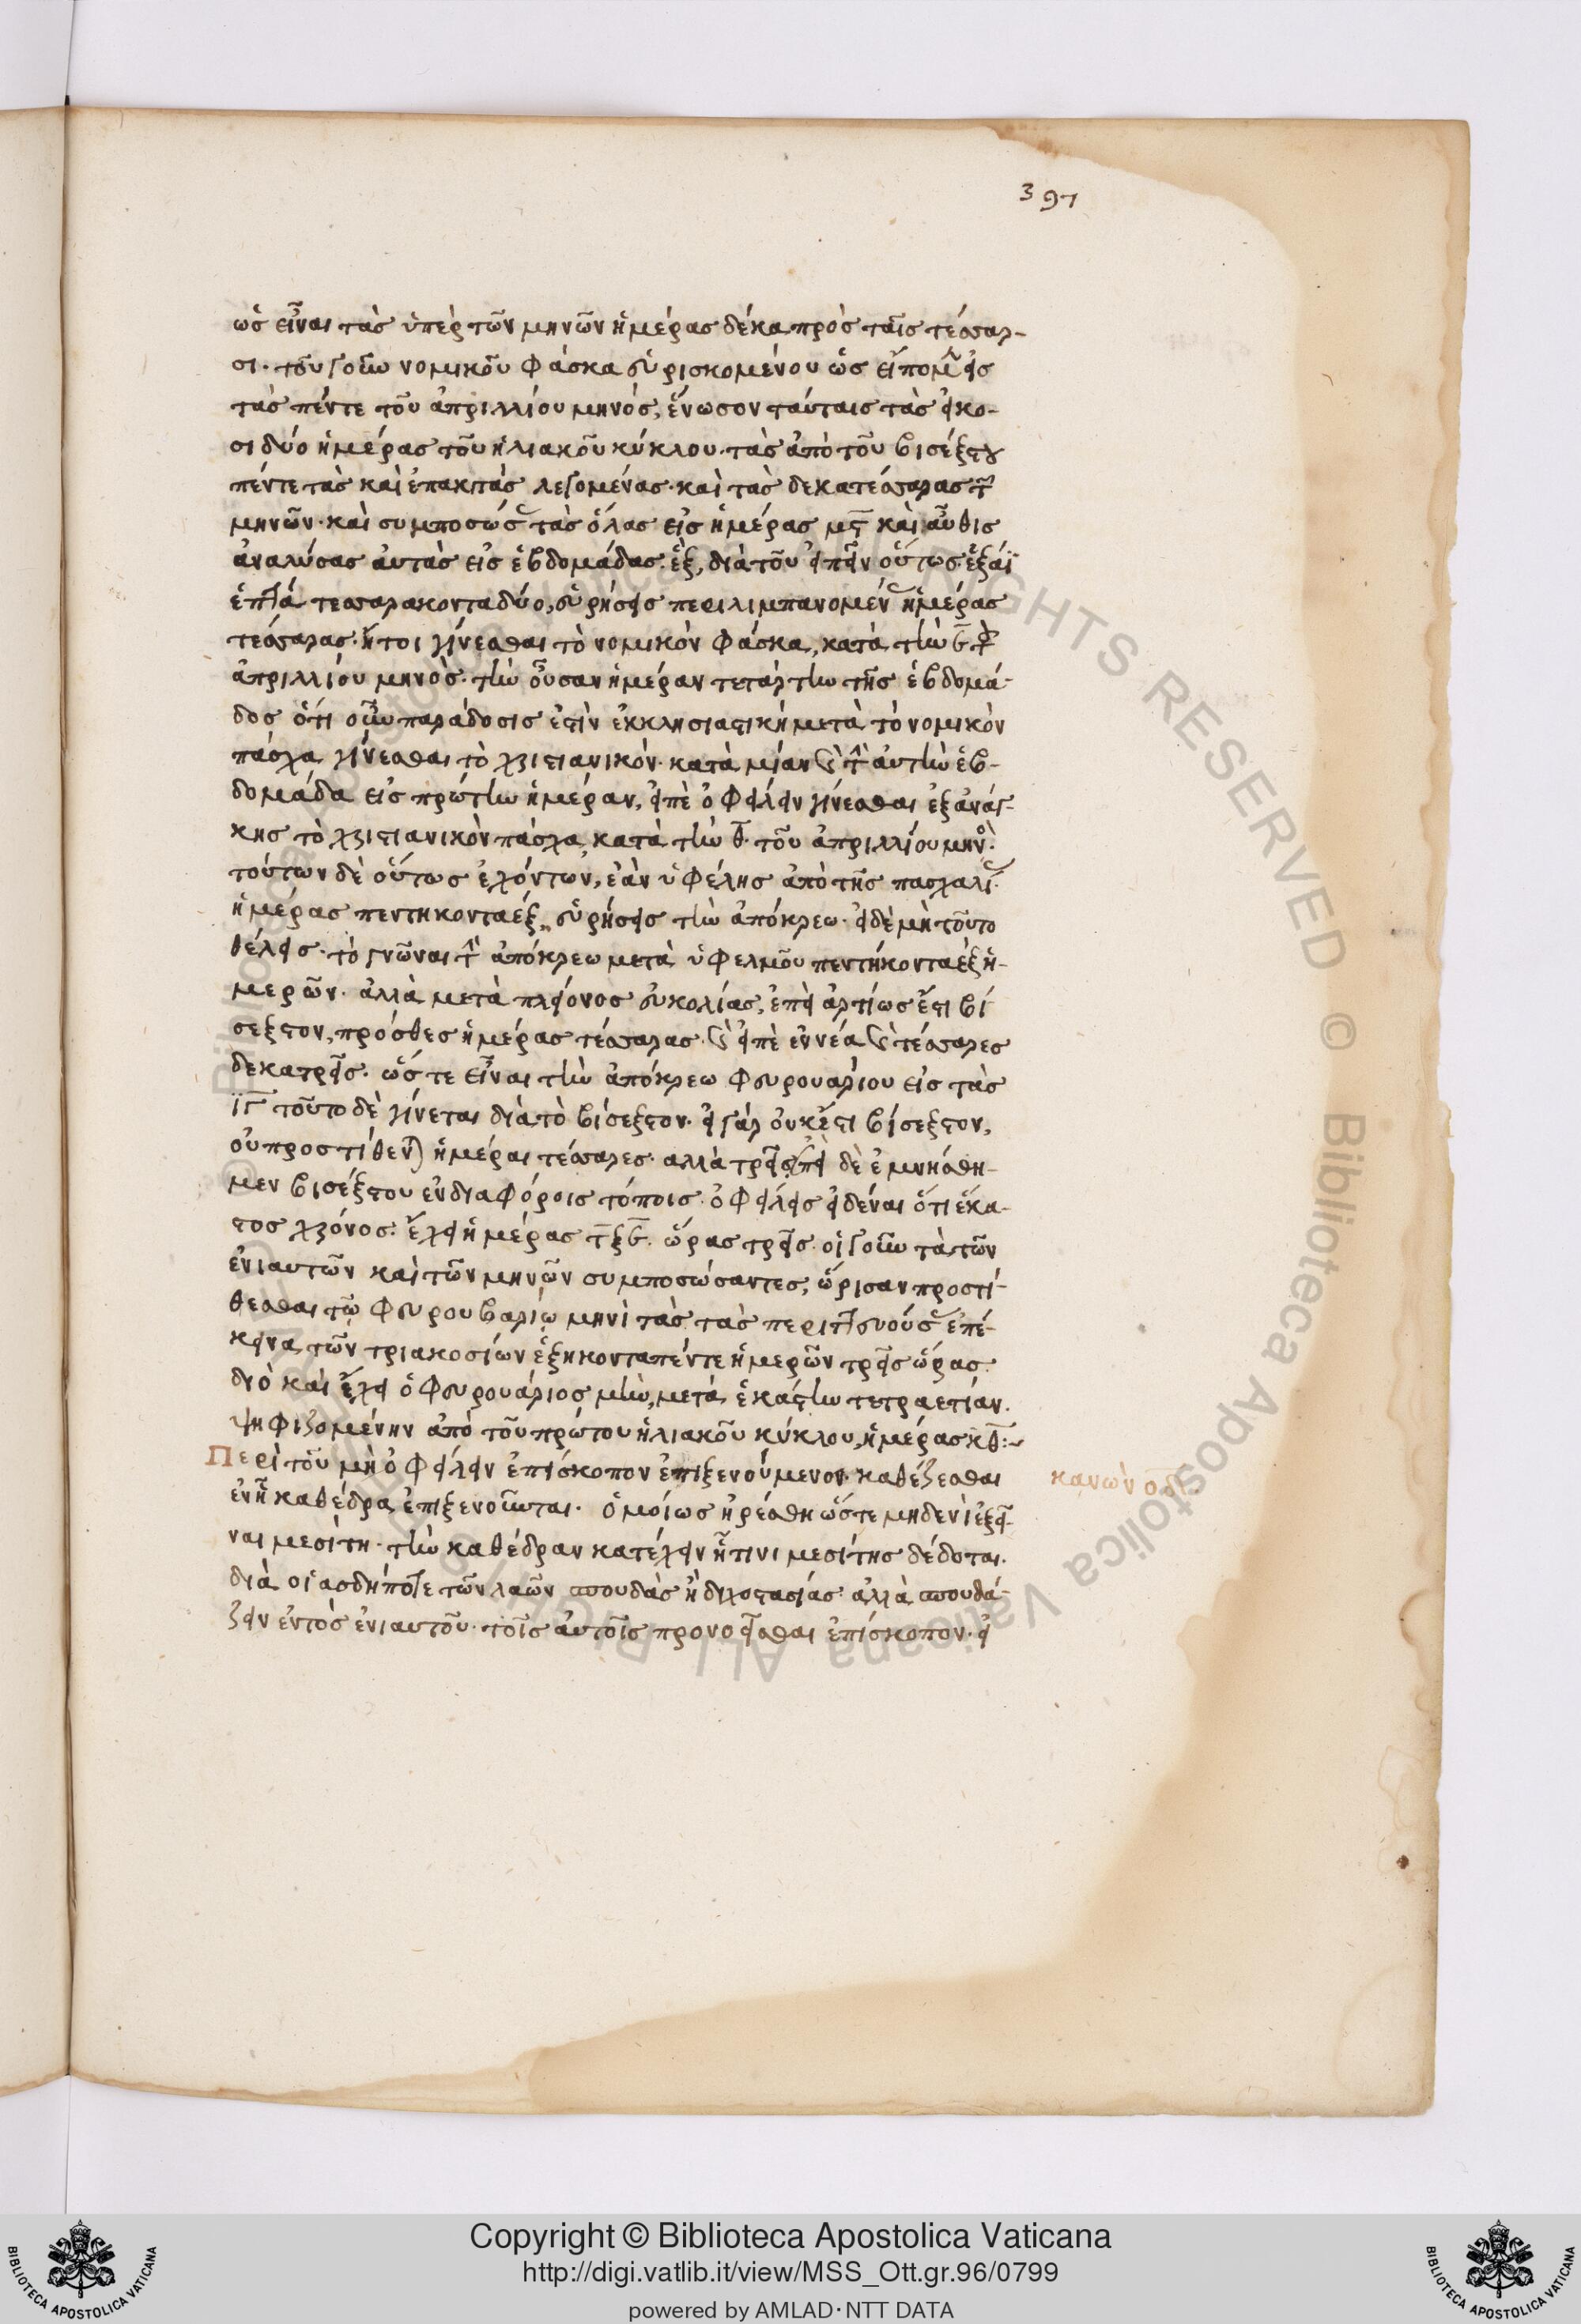 397
ὡς εἶναι τὰς ὑπὲρ τῶν μηνῶν ἡμέρας δέκα πρὸς ταῖς τέσσαρ-
σι· τοῦ γοῦν νομικοῦ φάσκα εὑρισκομένου ὡς εἴπομεν εἰς
τὰς πέντε τοῦ ἀπριλλίου μηνός, ἕνωσον ταύταις τὰς εἰκο-
σιδύο ἡμέρας τοῦ ἡλιακοῦ κύκλου· τὰς ἀπὸ τοῦ βισέξτου
πέντε τὰς καὶ ἐπακτὰς λεγομένας· καὶ τὰς δεκατέσσαρας τῶν
μηνῶν· καὶ συμποσώσας τὰς ὅλας εἰς ἡμέρας μϛ καὶ αὖθις
ἀναλύσας αὐτὰς εἰς ἑβδομάδας ἕξ, διὰ τοῦ εἰπεῖν οὕτως ἑξάϊ
ἑπτὰ τεσσαρακονταδύο, εὑρήσεις περιλιμπανομένας ἡμέρας
τέσσαρας· ἤτοι γίνεσθαι τὸ νομικὸν φάσκα, κατὰ τὴν ε τοῦ
ἀπριλλίου μηνός· τὴν οὖσαν ἡμέραν τετάρτην τῆς ἑβδομά-
δος ὅτι οὖν παράδοσις ἐστὶν ἐκκλησιαστικὴ μετὰ τὸ νομικὸν
πάσχα γίνεσθαι τὸ χριστιανικόν· κατὰ μίαν καὶ τὴν αὐτὴν ἑβ-
δομάδα εἰς πρώτην ἡμέραν, εἰπὲ ὀφείλειν γίνεσθαι ἐξ ἀνάγ-
κης τὸ χριστιανικὸν πάσχα, κατὰ τὴν θ. τοῦ ἀπριλλίου μηνός·
τούτων δὲ οὕτως ἐχόντων, ἐὰν ὑφέλης ἀπὸ τῆς πασχαλίας
ἡμέρας πεντηκονταέξ, εὑρήσεις τὴν ἀπόκρεω· εἰ δὲ μὴ τοῦτο
θέλεις· τὸ γνῶναι τὴν ἀπόκρεω μετὰ ὑφελμοῦ πεντήκονταὲξ ἡ-
μερῶν· ἀλλὰ μετὰ πλείονος εὐκολίας, ἐπεὶ ἀρτίως ἐστι βί
σεξτον, πρόσθες ἡμέρας τέσσαρας· καὶ εἰπὲ ἐννέα καὶ τέσσαρες
δεκατρεῖς· ὥστε εἶναι τὴν ἀπόκρεω φευρουαρίου εἰς τὰς
ιγ τοῦτο δὲ γίνεται διὰ τὸ βίσεξτον· εἰ γὰρ οὐκ ἔστι βίσεξτον,
οὐ προστίθενται ἡμέραι τέσσαρες· αλλὰ τρεῖς ἐπεὶ δὲ ἐμνήσθη-
μεν βισέξτου ἐν διαφόροις τόποις· ὀφείλεις εἰδέναι ὅτι ἕκα-
στος χρόνος· ἔχει ἡμέρας τξε. ὥρας τρεῖς· οἱ γοῦν τὰ τῶν
ἐνιαυτῶν καὶ τῶν μηνῶν συμποσώσαντες, ὥρισαν προστί-
θεσθαι τῷ φευρουβαρίῳ μηνὶ τὰς τὰς περιττευούσας ἐπέ-
κεινα τῶν τριακοσίων ἑξηκονταπέντε ἡμερῶν τρεῖς ὥρας·
διὸ καὶ ἔχει ὁ φευρουάριος μὴν, μετὰ ἑκάστην τετραετίαν.
ψηφιζομένην ἀπὸ τοῦ πρώτου ἡλιακοῦ κύκλου, ἡμέρας κθ:~
Περὶ τοῦ μὴ ὀφείλειν ἐπίσκοπον ἐπιξενούμενον· καθέζεσθαι
κανὼν οδ.
ἐν ᾗ καθέδρα ἐπιξενοῦνται· ὁμοίως ἠρέσθη ὥστε μηδενὶ ἐξεῖ-
ναι μεσίτη· τὴν καθέδραν κατέχειν ᾗτινι μεσίτης δέδοται.
διὰ οἱασδήποτε τῶν λαῶν σπουδὰς ἢ διχοστασίας· ἀλλὰ σπουδά-
ζειν ἐντὸς ἐνιαυτοῦ· τοῖς αὐτοῖς προνοεῖσθαι ἐπίσκοπον· εἰ
Copyright © Biblioteca Apostolica Vaticana
http://digi.vatlib.it/view/MSS_Ott.gr.96/0799
powered by AMLAD·NTT DATA